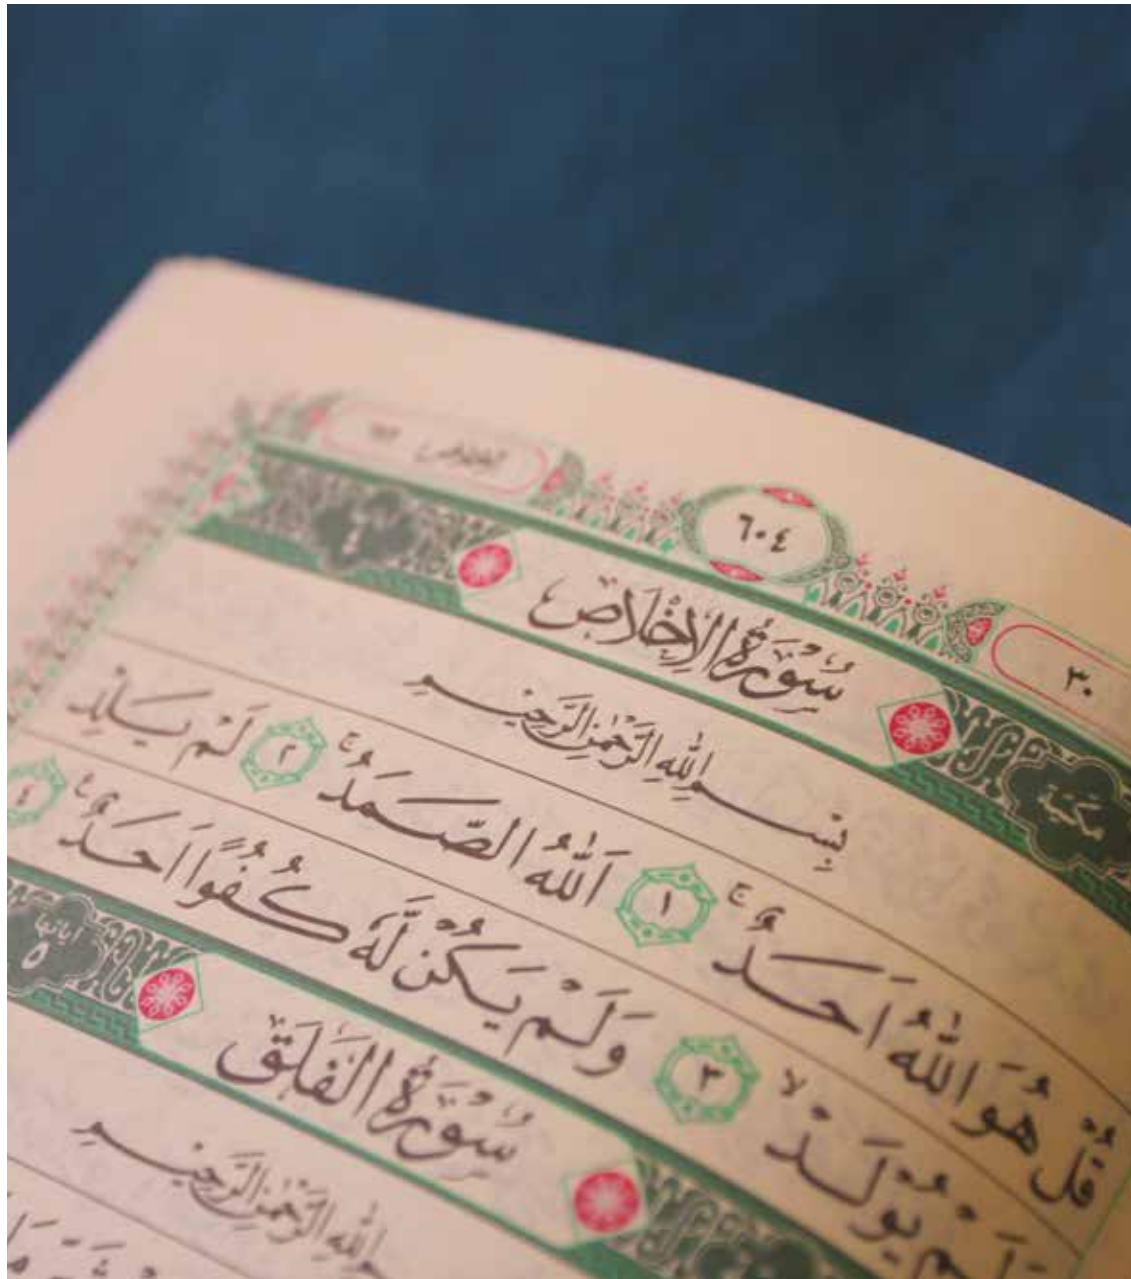 ٦٠٤
٣٠
سُورَةُ الْاِخْلَاصِ
بِسْمِ اللّٰهِ الرَّحْمٰنِ الرَّحِيْمِ
قُلْ هُوَ اللّٰهُ اَحَدٌ ۚ ١ اَللّٰهُ الصَّمَدُ ۚ ٢ لَمْ يَلِدْ
وَلَمْ يُوْلَدْ ۙ ٣ وَلَمْ يَكُنْ لَّهٗ كُفُوًا اَحَدٌ ٤
اٰیاتها ٥
سُورَةُ الْفَلَقِ
بِسْمِ اللّٰهِ الرَّحْمٰنِ الرَّحِيْمِ